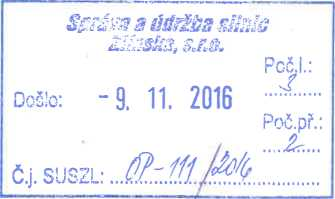 Správa a údržba silnic
Zlínska, s.r.o.
Poč.l.:
3
Došlo: - 9. 11. 2016
Poč.př.:
2
Č.j. SUSZL: OP-111/2016